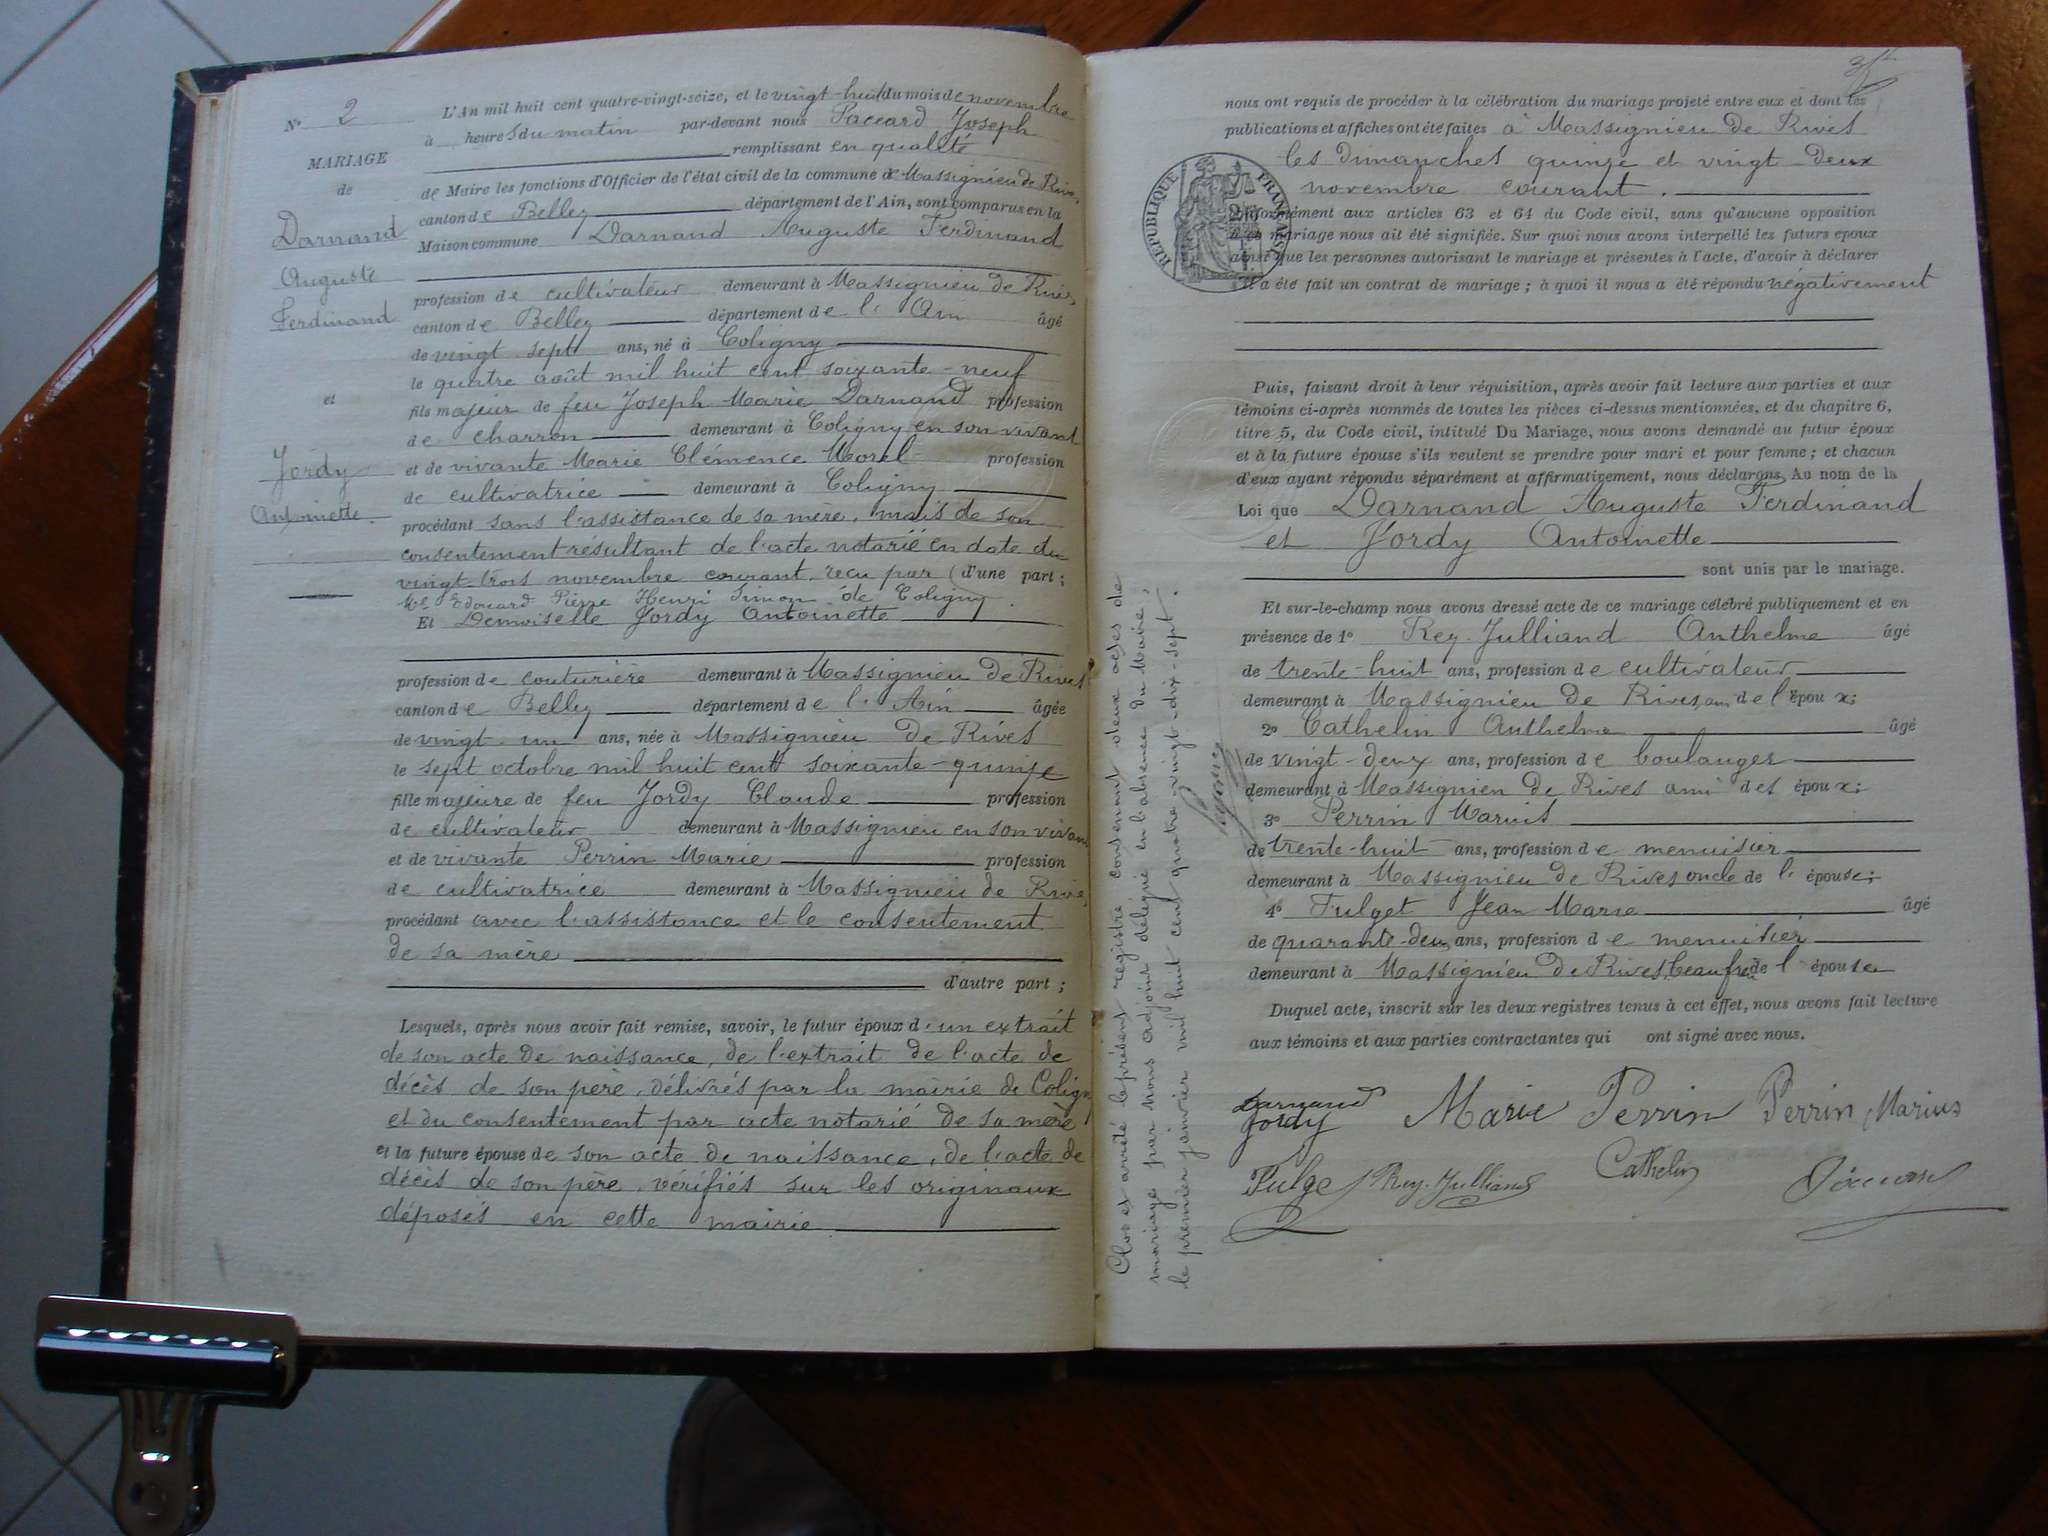 No 2
MARIAGE
de
Darnand
Auguste
Ferdinand
et
Jordy
Antoinette.
L'An mil huit cent quatre-vingt-seize, et le vingt-huit du mois de novembre
à heures du matin par-devant nous Paccard Joseph
remplissant en qualité
de Maire les fonctions d'Officier de l'état civil de la commune de Massignieu de Rives,
canton de Belley département de l'Ain, sont comparus en la
Maison commune Darnand Auguste Ferdinand
profession de cultivateur demeurant à Massignieu de Rives,
canton de Belley département de l'Ain âgé
de vingt sept ans, né à Coligny
le quatre août mil huit cent soixante-neuf
fils majeur de feu Joseph Marie Darnand profession
de charron demeurant à Coligny en son vivant
et de vivante Marie Clémence Morel profession
de cultivatrice demeurant à Coligny
procédant sans l'assistance de sa mère, mais de son
consentement résultant de l'acte notarié en date du
vingt-trois novembre courant, reçu par (d'une part;
Me Edouard Pierre Henri Simon de Coligny.
Et Demoiselle Jordy Antoinette
profession de couturière demeurant à Massignieu de Rives
canton de Belley département de l'Ain âgée
de vingt-un ans, née à Massignieu de Rives
le sept octobre mil huit cent soixante-quinze
fille majeure de feu Jordy Claude profession
de cultivateur demeurant à Massignieu en son vivant
et de vivante Perrin Marie profession
de cultivatrice demeurant à Massignieu de Rives,
procédant avec l'assistance et le consentement
de sa mère
d'autre part;
Lesquels, après nous avoir fait remise, savoir, le futur époux d'un extrait
de son acte de naissance, de l'extrait de l'acte de
décès de son père, délivrés par la mairie de Coligny
et du consentement par acte notarié de sa mère
et la future épouse de son acte de naissance, de l'acte de
décès de son père, vérifiés sur les originaux
déposés en cette mairie
nous ont requis de procéder à la célébration du mariage projeté entre eux et dont les
publications et affiches ont été faites à Massignieu de Rives
les dimanches quinze et vingt-deux
novembre courant.
RÉPUBLIQUE FRANÇAISE
conformément aux articles 63 et 64 du Code civil, sans qu'aucune opposition
mariage nous ait été signifiée. Sur quoi nous avons interpellé les futurs époux
ainsi que les personnes autorisant le mariage et présentes à l'acte, d'avoir à déclarer
s'il a été fait un contrat de mariage; à quoi il nous a été répondu négativement
Puis, faisant droit à leur réquisition, après avoir fait lecture aux parties et aux
témoins ci-après nommés de toutes les pièces ci-dessus mentionnées, et du chapitre 6,
titre 5, du Code civil, intitulé Du Mariage, nous avons demandé au futur époux
et à la future épouse s'ils veulent se prendre pour mari et pour femme; et chacun
d'eux ayant répondu séparément et affirmativement, nous déclarons Au nom de la
Loi que Darnand Auguste Ferdinand
et Jordy Antoinette
sont unis par le mariage.
Et sur-le-champ nous avons dressé acte de ce mariage célébré publiquement et en
présence de 1o Rey-Julliand Anthelme âgé
de trente-huit ans, profession de cultivateur
demeurant à Massignieu de Rives, ami de l'époux;
2o Cathelin Anthelme âgé
de vingt-deux ans, profession de boulanger
demeurant à Massignieu de Rives ami des époux;
3o Perrin Marius
de trente-huit ans, profession de menuisier
demeurant à Massignieu de Rives oncle de l'épouse;
4o Fulget Jean Marie âgé
de quarante-deux ans, profession de menuisier
demeurant à Massignieu de Rives, beau frère de l'épouse
Duquel acte, inscrit sur les deux registres tenus à cet effet, nous avons fait lecture
aux témoins et aux parties contractantes qui ont signé avec nous.
Darnand
Jordy Marie Perrin Perrin Marius
Fulget Rey-Julliand Cathelin Paccard
Clos et arrêté le présent registre contenant deux actes de
mariage par nous adjoint délégué en l'absence du Maire,
le premier janvier mil huit cent quatre vingt-dix-sept.